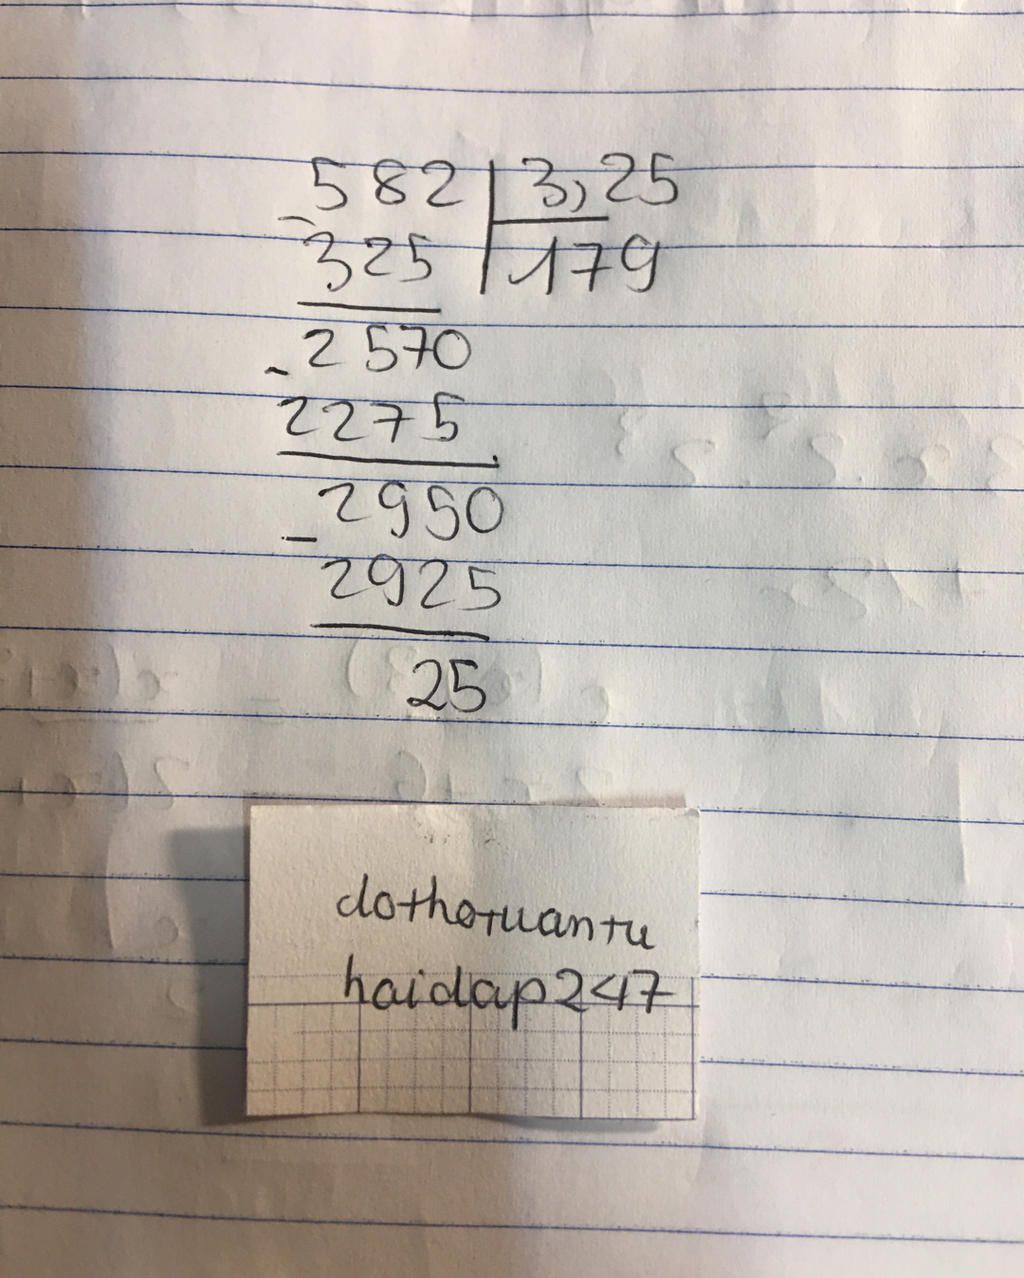 582 3,25
- 325 179
- 2570
2275
- 2950
2925
25
dothotuantu
haidap247